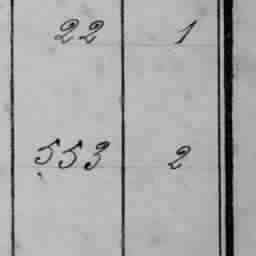 22 1
553 2